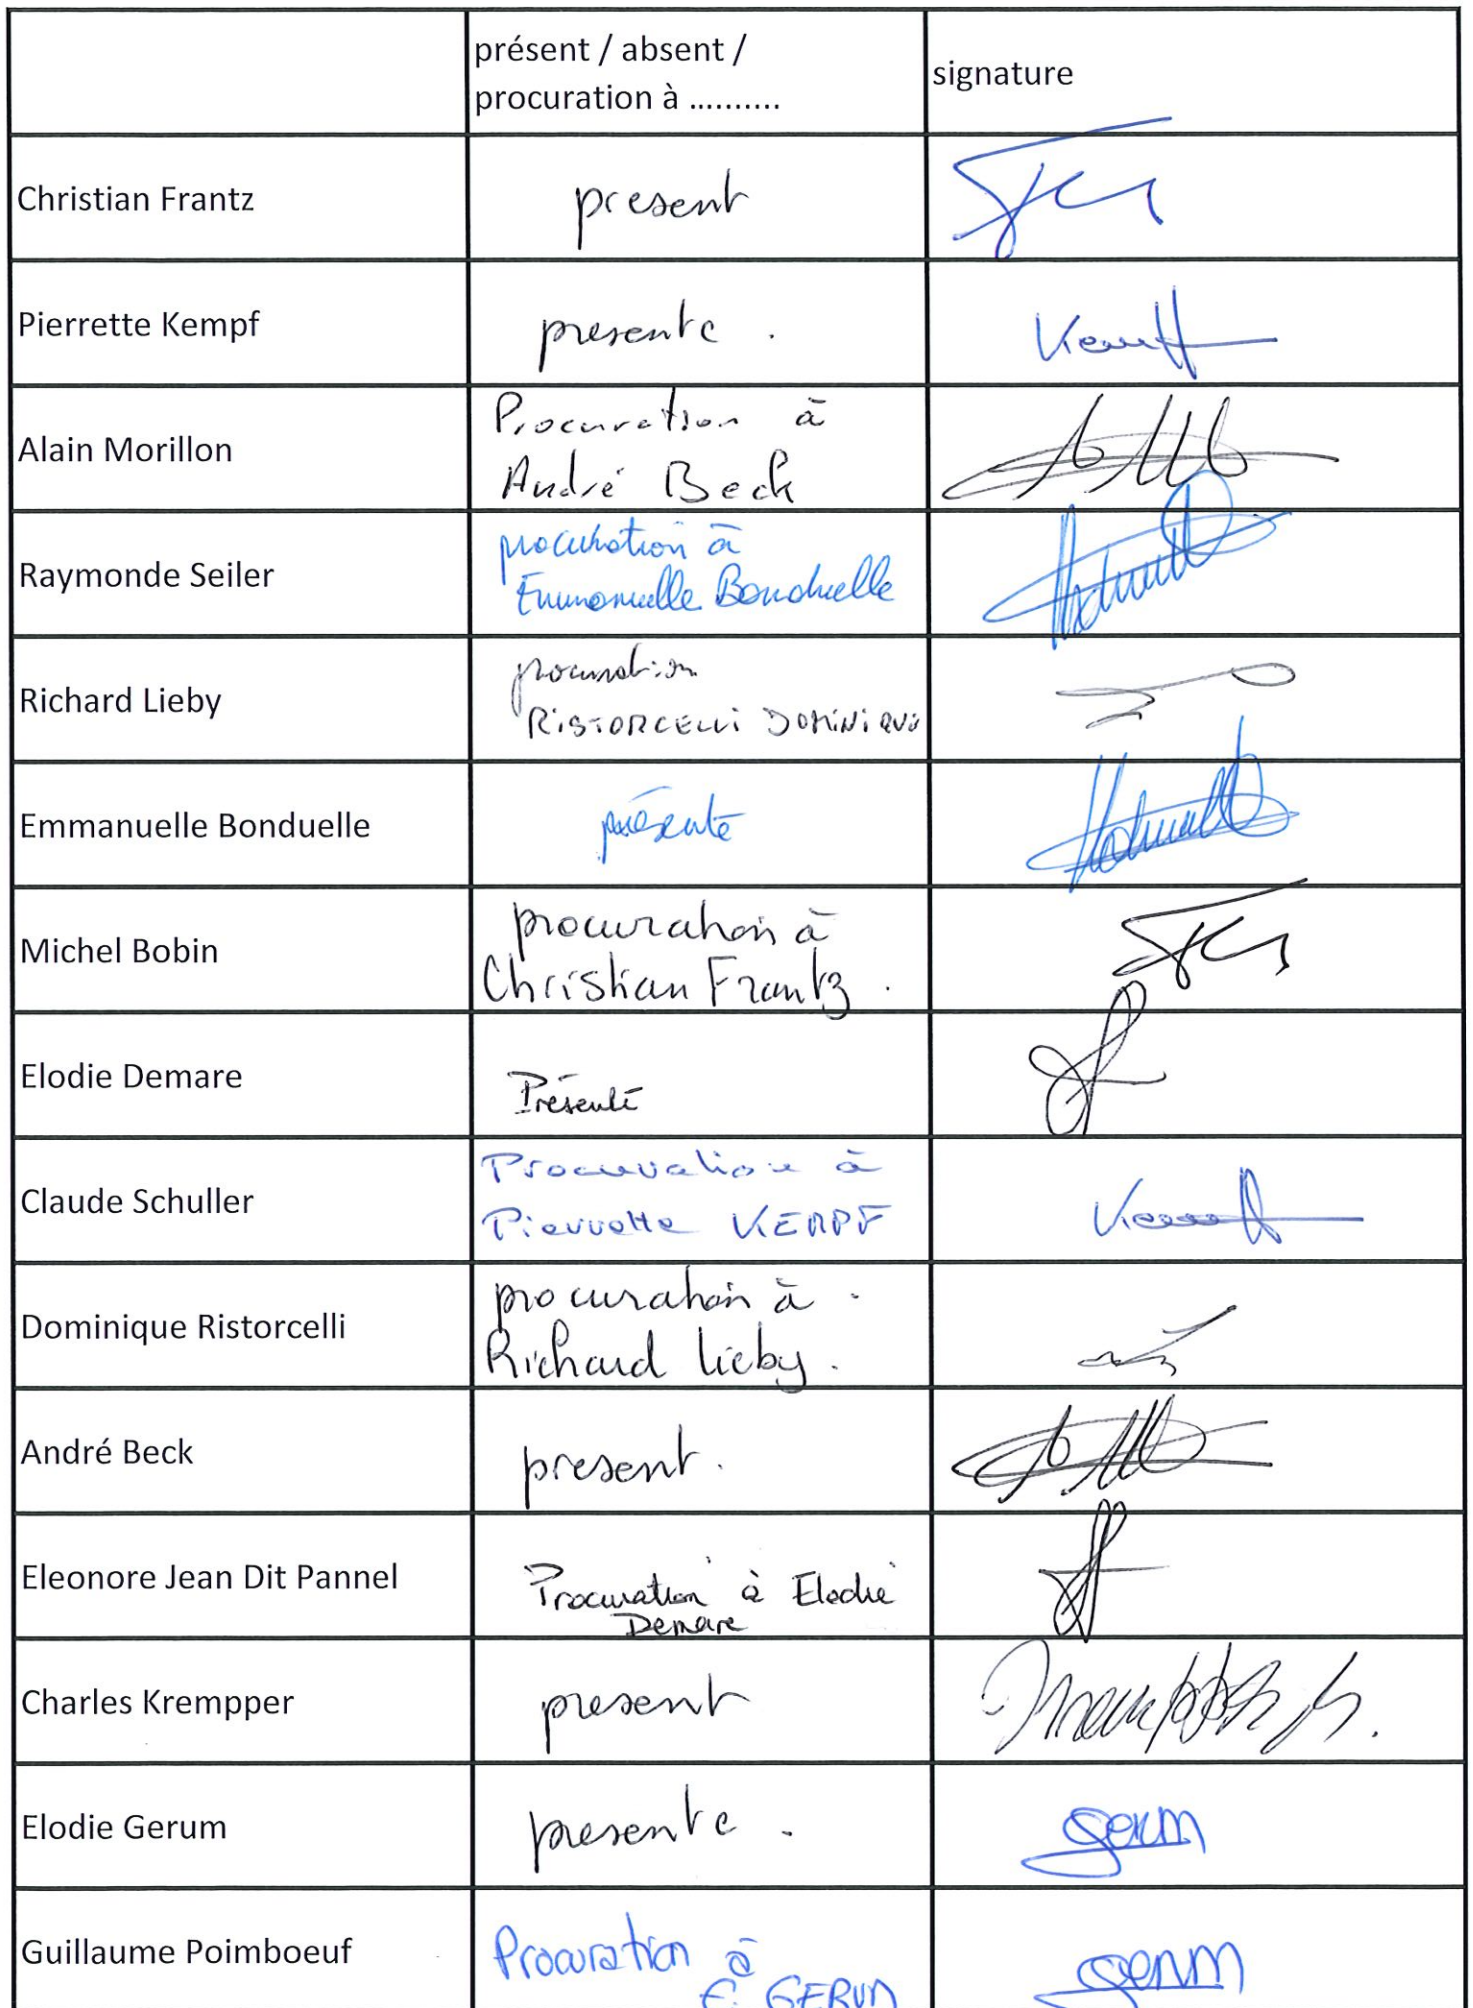 présent / absent /
procuration à ..........
signature
Christian Frantz
present
Pierrette Kempf
presente .
Kempff
Alain Morillon
Procuration à
André Beck
Raymonde Seiler
procuration à
Emmanuelle Bonduelle
Richard Lieby
procuration
RISTORCELLI DOMINIQUE
Emmanuelle Bonduelle
présente
Michel Bobin
procuration à
Christian Frantz .
Elodie Demare
Présente
Claude Schuller
Procuration à
Pierrette KEMPF
Dominique Ristorcelli
procuration à
Richard Lieby .
André Beck
present .
Eleonore Jean Dit Pannel
Procuration à Elodie
Demare
Charles Krempper
present
Elodie Gerum
presente .
gerum
Guillaume Poimboeuf
Procuration à
E. GERUM
gerum